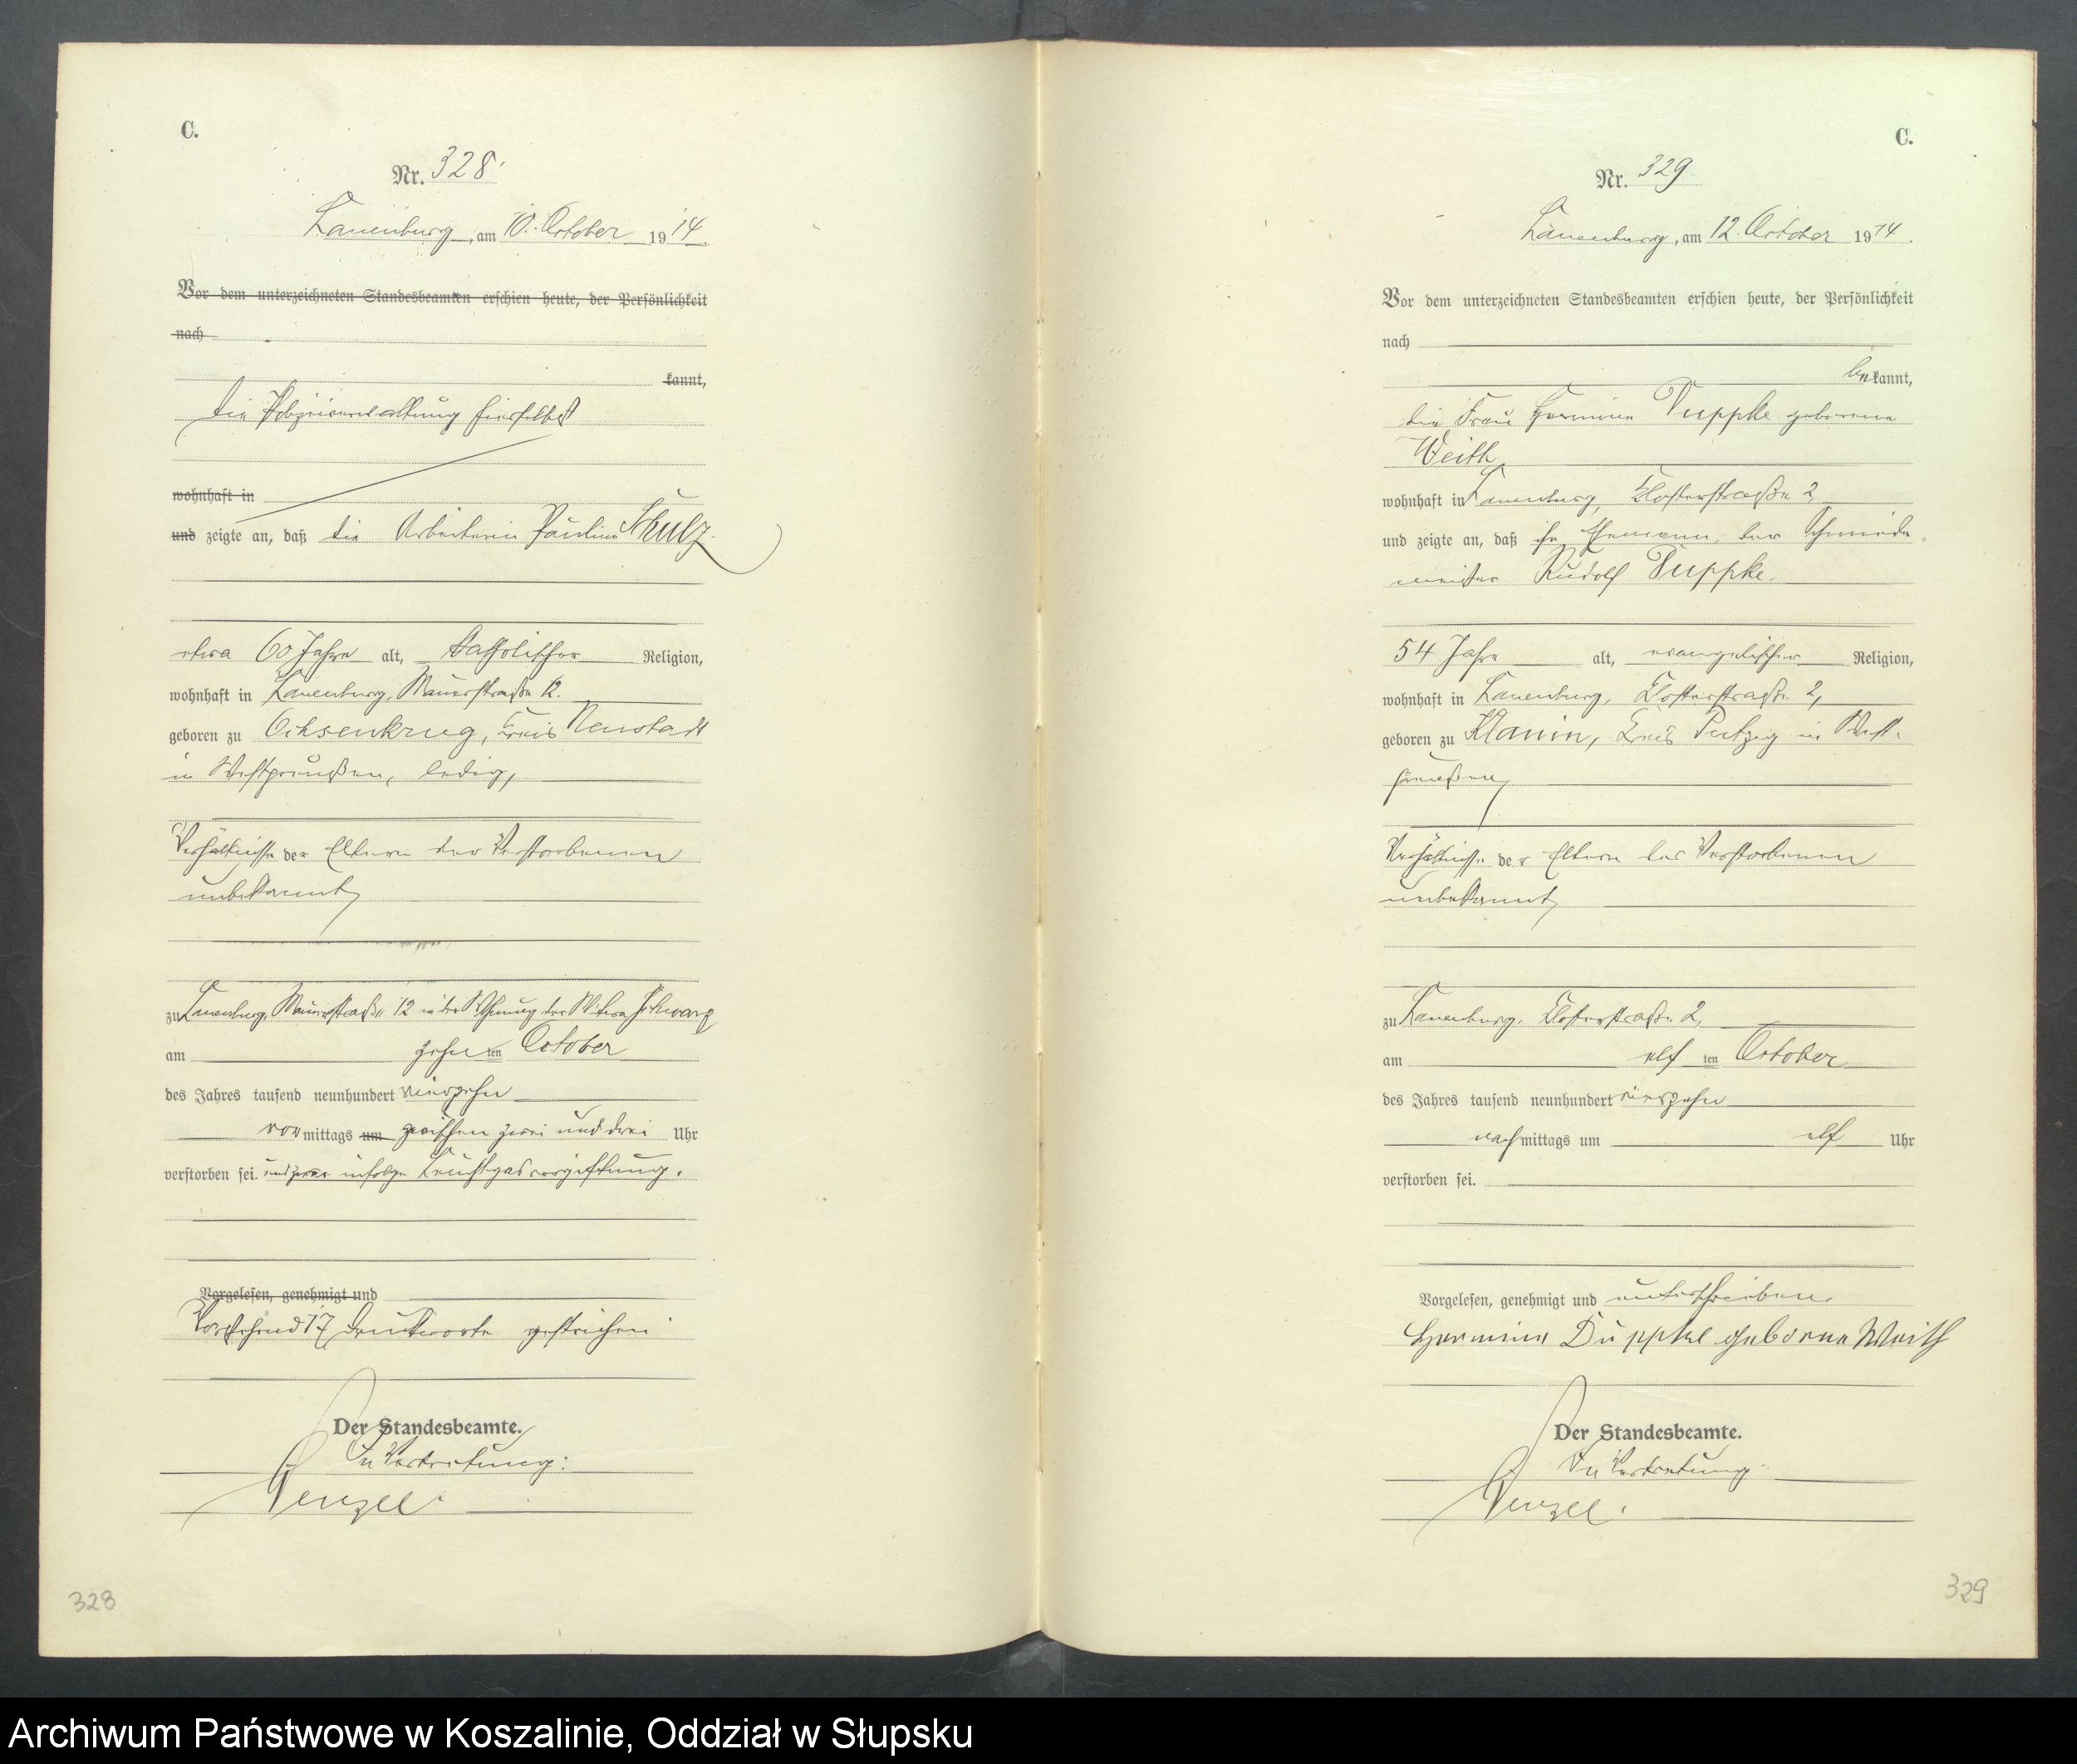 C.
Nr. 328.
Lauenburg, am 10. October 1914.
Vor dem unterzeichneten Standesbeamten erschien heute, der Persönlichkeit
nach
kannt,
die Polizeiverwaltung hierselbst
wohnhaft in
und zeigte an, daß die Arbeiterin Pauline Schulz
etwa 60 Jahre alt, katholischer Religion,
wohnhaft in Lauenburg, Mauerstraße 12.
geboren zu Ochsenkrug, Kreis Neustadt
in Westpreußen, ledig,
Verhältnisse der Eltern der Verstorbenen
unbekannt,
zu Lauenburg, Mauerstraße 12 in der Wohnung der Witwe Schwarz
am zehnten October
des Jahres tausend neunhundert vierzehn
vormittags um zwischen zwei und drei Uhr
verstorben sei. und zwar infolge Leuchtgasvergiftung.
Vorgelesen, genehmigt und
Vorstehend 17 Druckworte gestrichen
Der Standesbeamte.
In Vertretung:
Wenzel.
328
C.
Nr. 329
Lauenburg, am 12. October 1914.
Vor dem unterzeichneten Standesbeamten erschien heute, der Persönlichkeit
nach
bekannt,
die Frau Hermine Duppke geborene
Weith
wohnhaft in Lauenburg, Klosterstraße 2,
und zeigte an, daß ihr Ehemann, der Schmiede
meister Rudolf Duppke,
54 Jahre alt, evangelischer Religion,
wohnhaft in Lauenburg, Klosterstraße 2,
geboren zu Klanin, Kreis Putzig in West-
preußen,
Verhältnisse der Eltern des Verstorbenen
unbekannt,
zu Lauenburg, Klosterstraße 2,
am elften October
des Jahres tausend neunhundert vierzehn
nachmittags um elf Uhr
verstorben sei.
Vorgelesen, genehmigt und unterschrieben.
Hermine Duppke geborene Weith
Der Standesbeamte.
In Vertretung.
Wenzel.
329
Archiwum Państwowe w Koszalinie, Oddział w Słupsku